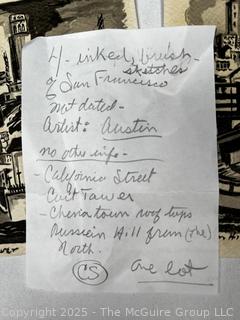 4 - inked, brush
sketches
of San Francisco
not dated -
Artist: Austin
no other info -
- California Street
Coit Tower
- China town roof tops
Russian Hill from (the)
North.
CS
One lot
Copyright © 2025 - The McGuire Group LLC